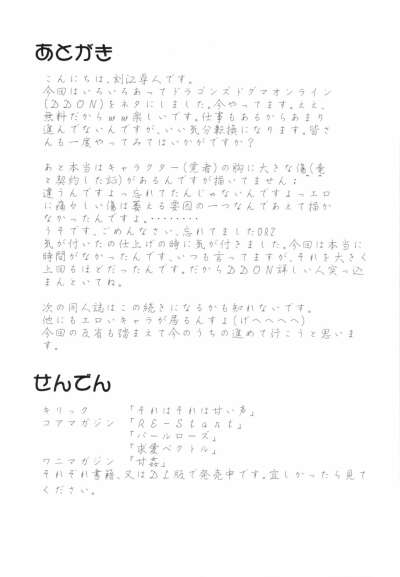 あとがき
こんにちは、刻江尋人です。
今回はいろいろあってドラゴンズドグマオンライン
(DDON)をネタにしました。今やってます。ええ、
無料だからww楽しいです。仕事もあるからあまり
進んでないんですが、いい気分転換になります。皆さ
んも一度やってみてはいかがですか?
あと本当はキャラクター(覚者)の胸に大きな傷(竜
と契約した証)があるんですが描いてません;
違うんですよっ忘れてたんじゃないんですよっエロ
に痛々しい傷は萎える要因の一つなんであえて描か
なかったんですよ。・・・・・・・・
うそです、ごめんなさい、忘れてましたORZ
気が付いたの仕上げの時に気が付きました。今回は本当に
時間がなかったんです、いつも言ってますが、それを大きく
上回るほどだったんです。だからDDON詳しい人突っ込
まんといてね。
次の同人誌はこの続きになるかも知れないです。
他にもエロいキャラが居るんすよ(げへへへへ)
今回の反省も踏まえて今のうちの進めて行こうと思いま
す。
せんでん
キリック 「それはそれは甘い声」
コアマガジン 「RE-Stant」
「パールローズ」
「求愛ベクトル」
ワニマガジン 「甘姦」
それぞれ書籍、又はDL版で発売中です。宜しかったら見て
ください。